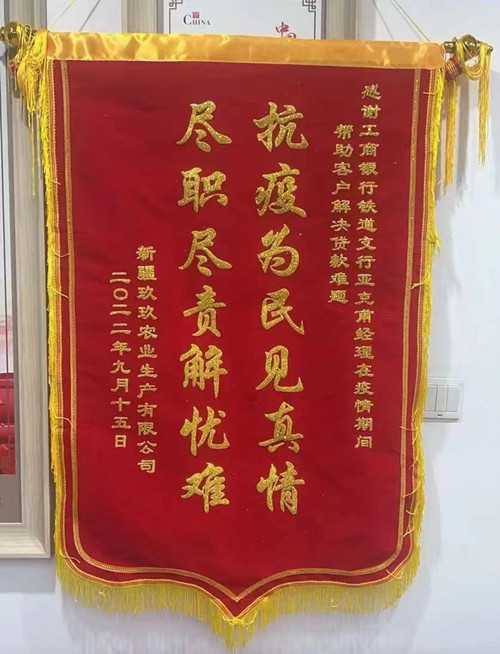 CHINA
中
感谢工商银行铁道支行亚克甫经理在疫情期间
帮助客户解决贷款难题
抗疫为民见真情
尽职尽责解忧难
新疆玖玖农业生产有限公司
二〇二二年九月十五日